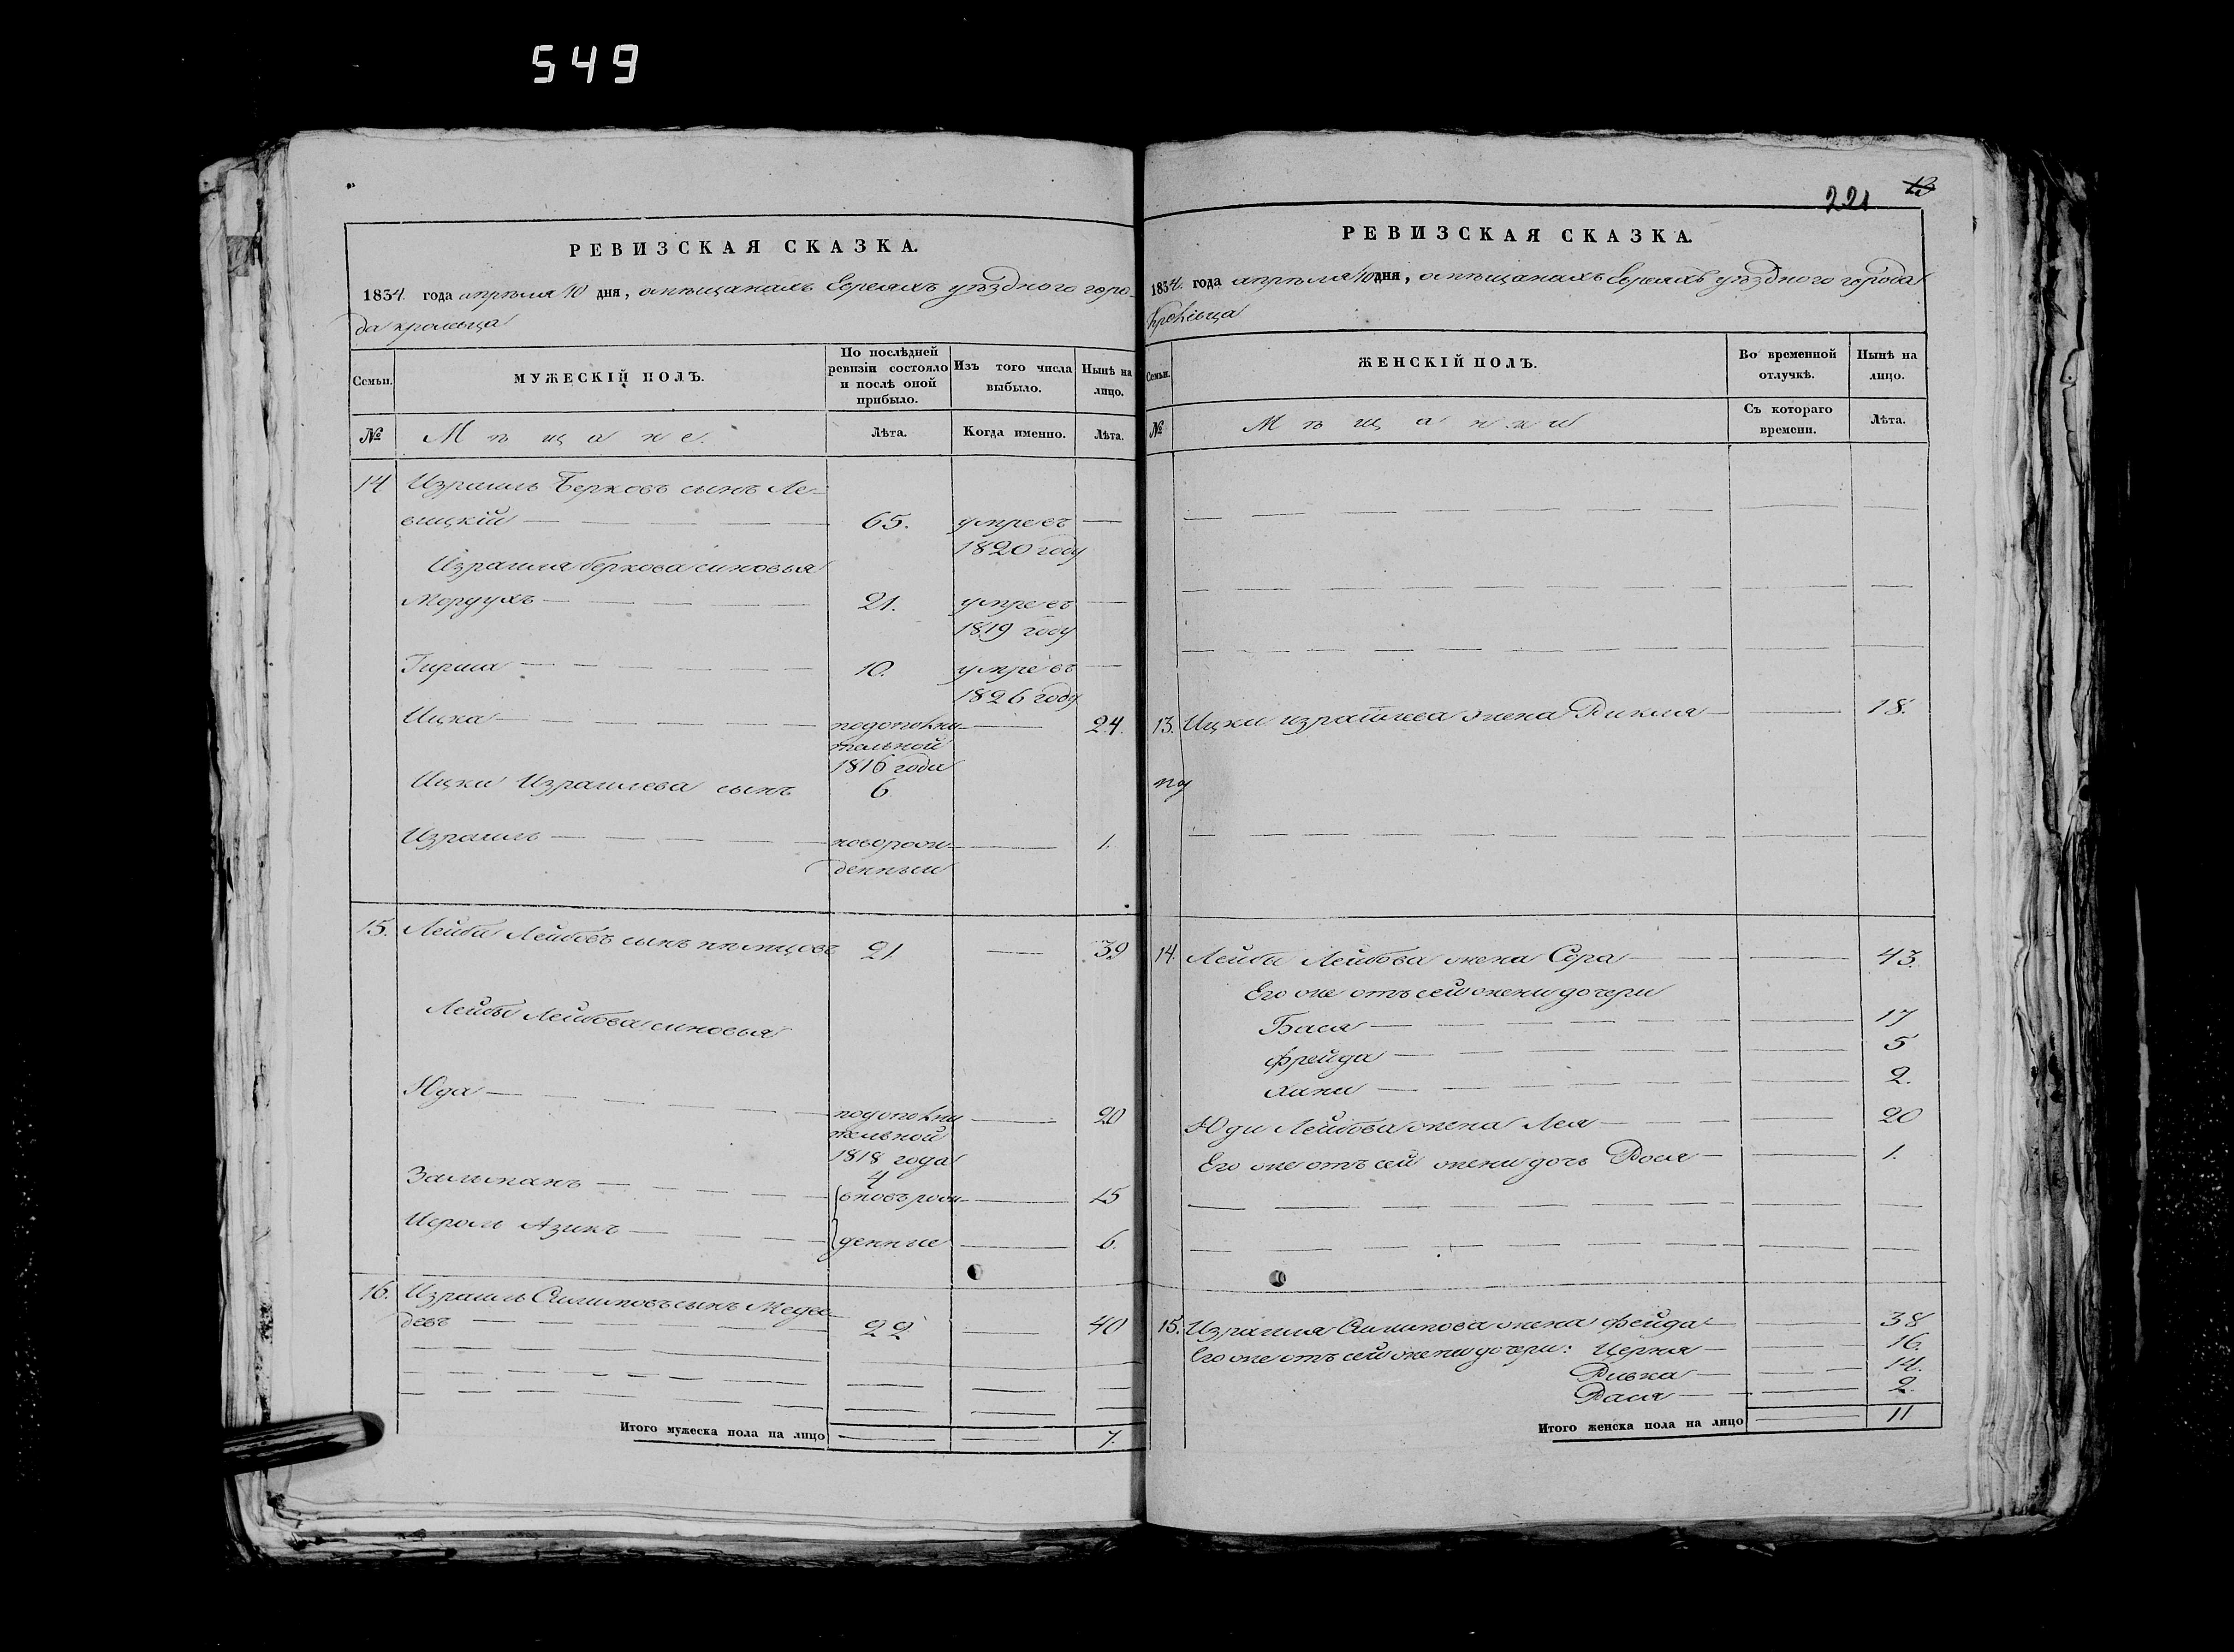 549
РЕВИЗСКАЯ СКАЗКА.
1834 года апрѣля 10 дня, о мѣщанахъ Евреяхъ уѣзднаго горо-
да кролевца
Семьи.
МУЖЕСКІЙ ПОЛЪ.
По послѣдней ревизіи состояло и послѣ оной прибыло.
Изъ того числа выбыло.
Нынѣ на лицо.
№
Мѣщане.
Лѣта.
Когда именно.
Лѣта.
14 Израиль Берковъ сынъ Ле-
вицкій 65. умре въ
1820 году
Израиля беркова синовья
Мордухъ 21. умре въ
1819 году
Гирша 10. умре въ
1826 году
Ицка подополни- 24.
тельной
1816 года
Ицки Израилева сынъ 6
Израиль новорож- 1.
денный
15. Лейба Лейбовъ сынъ 21 39
Лейбы Лейбова синовья
Юда подополни 20
тельной
1818 года
4
Залманъ вновърож- 15
Азикъ денные 6.
16. Израиль сынъ Медве-
девъ 22 40
Итого мужеска пола на лицо 7.
221 13
РЕВИЗСКАЯ СКАЗКА.
1834. года апрѣля 10 дня, о мѣщанахъ Евреяхъ уѣзднаго города
Кролевца
Семьи.
ЖЕНСКІЙ ПОЛЪ.
Во временной отлучкѣ.
Нынѣ на лицо.
№
Мѣщанки
Съ котораго времени.
Лѣта.
13. Ицки израилева жена Рикля 18.
14. Лейбы Лейбова жена Сора 43.
Его же отъ сей жени дочери
Бася 17
фрейда 5
Хана 2.
Юди Лейбова жена Лея 20
Его же отъ сей жени дочь Рося 1.
15. Израиля жена фейга 38
Его же отъ сей жени дочери: Церня 16.
Ривка 14.
Рася 2.
Итого женска пола на лицо 11